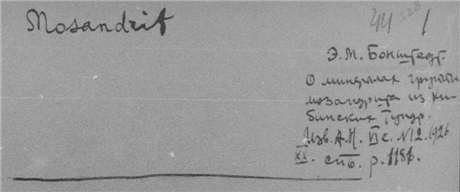 Mosandrit
44 1
Э. М. Бонштедт.
О минералах группы
мозандрита из Хи-
бинских Тундр.
Изв. А. Н. VI с. N 2. 1926
XX. спб. p. 1181.